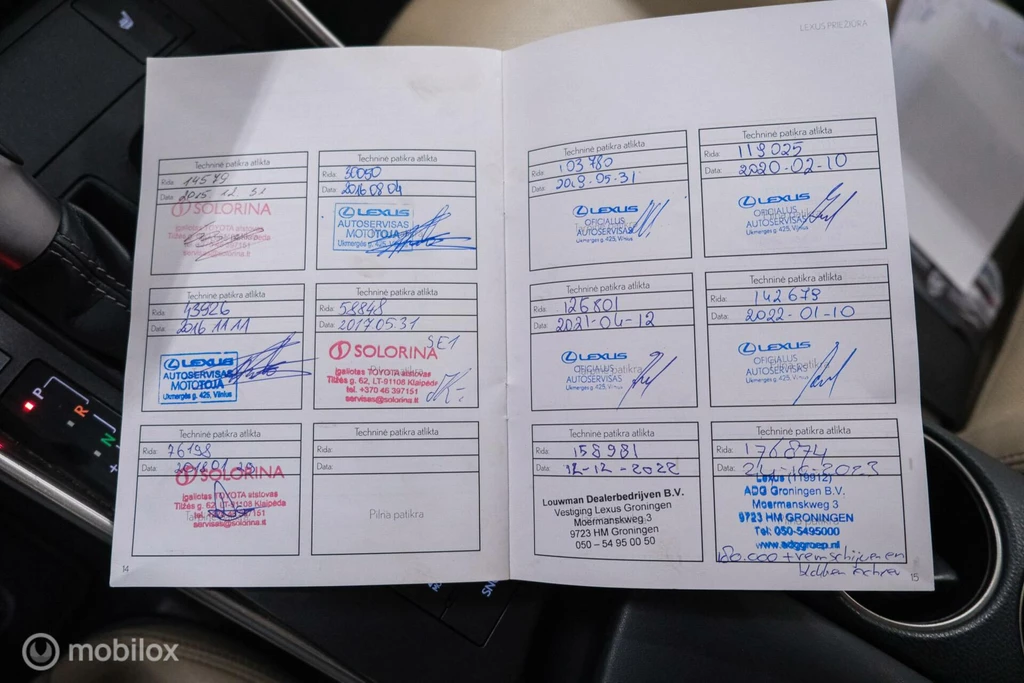 LEXUS PRIEŽIŪRA
Techninė patikra atlikta
Rida: 14579
Data: 2015 12 31
SOLORINA
įgaliotas TOYOTA atstovas
servisas@solorina.lt
Techninė patikra atlikta
Rida: 30050
Data: 2016 08 04
LEXUS
AUTOSERVISAS
MOTOTOJA
Ukmergės g. 425, Vilnius
Techninė patikra atlikta
Rida: 43926
Data: 2016 11 11
LEXUS
AUTOSERVISAS
MOTOTOJA
Ukmergės g. 425, Vilnius
Techninė patikra atlikta
Rida: 58848
Data: 2017 05 31
SE1
SOLORINA
įgaliotas TOYOTA atstovas
Tilžės g. 62, LT-91108 Klaipėda
tel. +370 46 397151
servisas@solorina.lt
Techninė patikra atlikta
Rida: 76198
Data:
SOLORINA
įgaliotas TOYOTA atstovas
Tilžės g. 62, LT-91108 Klaipėda
servisas@solorina.lt
Techninė patikra atlikta
Rida:
Data:
Pilna patikra
14
Techninė patikra atlikta
Rida: 103780
Data: 2019.05.31
LEXUS
OFICIALUS
AUTOSERVISAS
Ukmergės g. 425, Vilnius
Techninė patikra atlikta
Rida: 119025
Data: 2020-02-10
LEXUS
OFICIALUS
AUTOSERVISAS
Ukmergės g. 425, Vilnius
Techninė patikra atlikta
Rida: 126801
Data: 2021-04-12
LEXUS
OFICIALUS
AUTOSERVISAS
Ukmergės g. 425, Vilnius
Techninė patikra atlikta
Rida: 142679
Data: 2022-01-10
LEXUS
OFICIALUS
AUTOSERVISAS
Ukmergės g. 425, Vilnius
Techninė patikra atlikta
Rida: 158981
Data: 12-12-2022
Louwman Dealerbedrijven B.V.
Vestiging Lexus Groningen
Moermanskweg 3
9723 HM Groningen
050 – 54 95 00 50
Techninė patikra atlikta
Rida: 176874
Data: 24-10-2023
Lexus (119912)
ADG Groningen B.V.
Moermanskweg 3
9723 HM GRONINGEN
Tel: 050-5495000
www.adggroep.nl
180.000 + remschijven en
blokken achter
15
P
R
N
+
mobilox